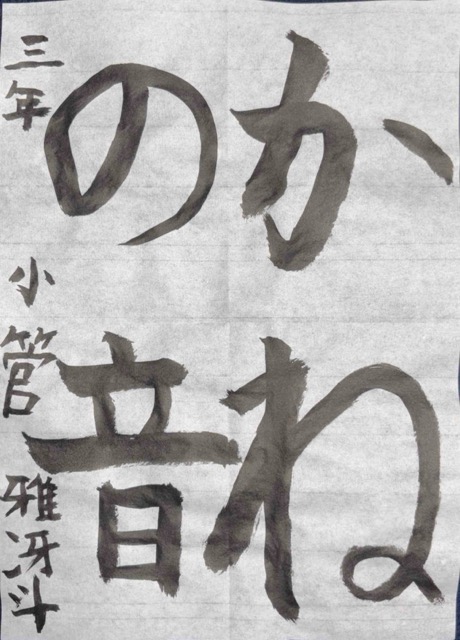 かね
の音
三年 小管 雅冴斗